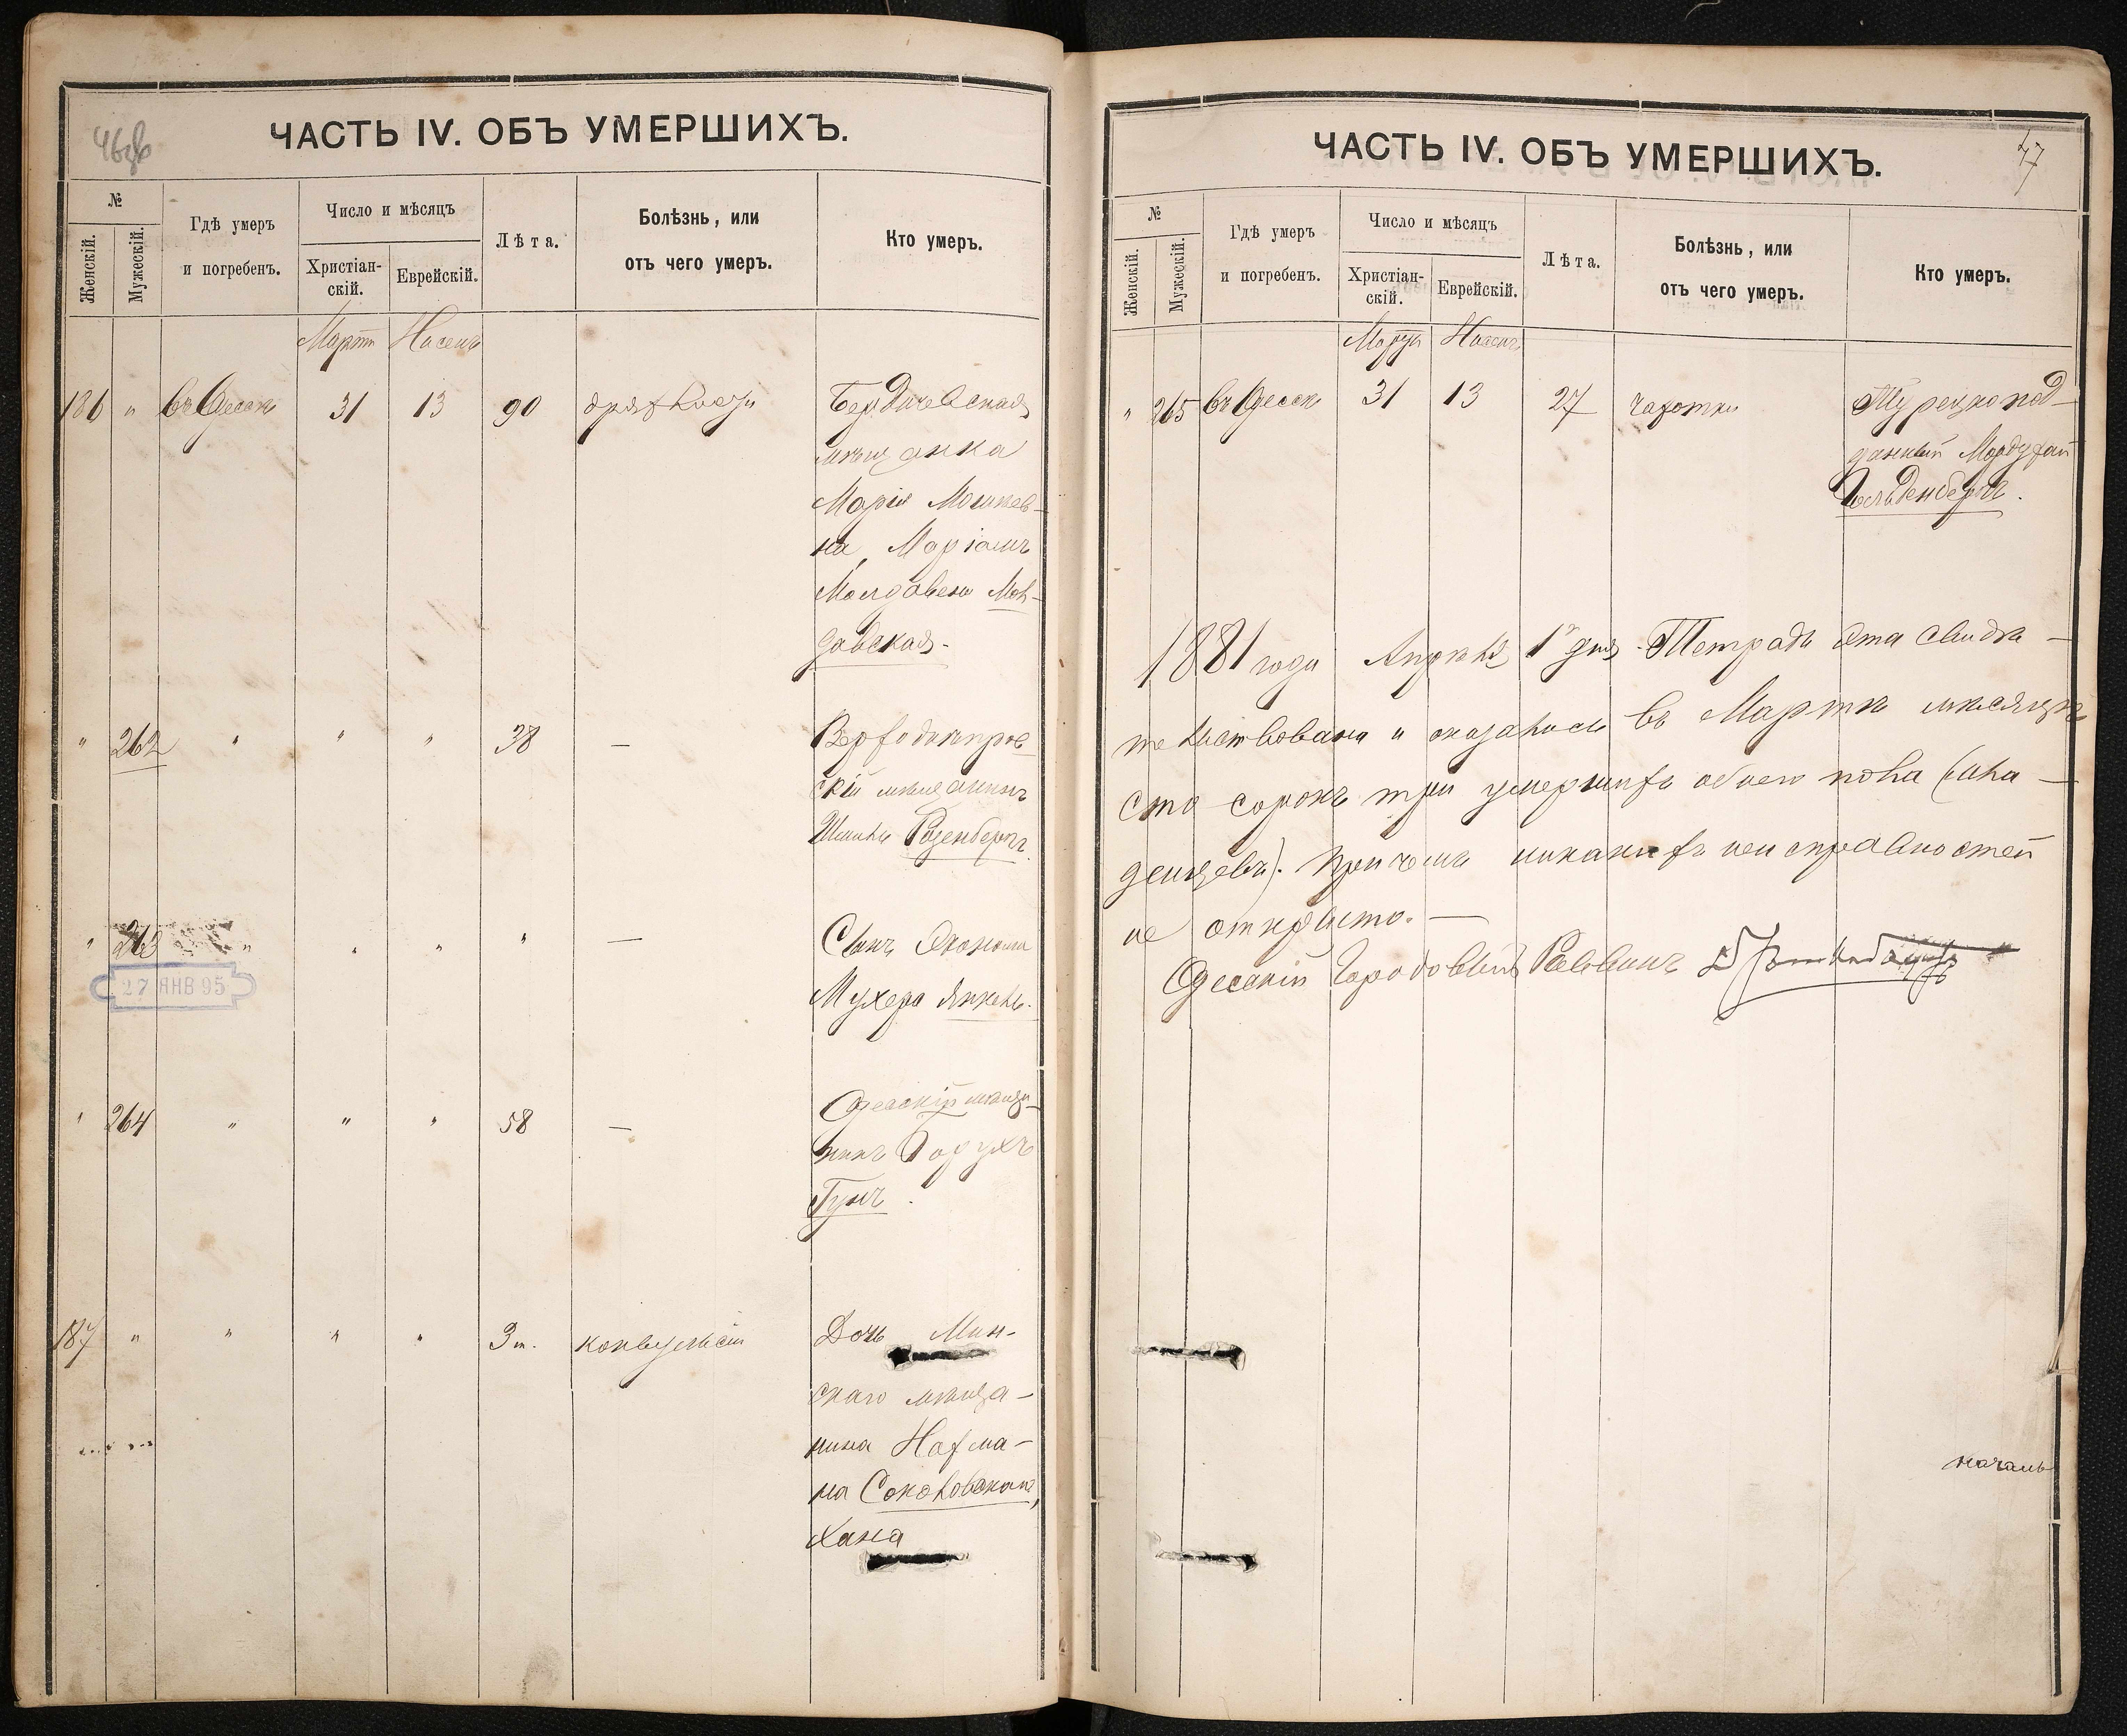 46об
ЧАСТЬ IV. ОБЪ УМЕРШИХЪ.
№
Женскій.
Мужескій.
Гдѣ умеръ
и погребенъ.
Число и мѣсяцъ
Христіан-
скій.
Еврейскій.
Лѣта.
Болѣзнь, или
отъ чего умеръ.
Кто умеръ.
Мартъ Нисенъ
186 " въ Одессѣ 31 13 90 дряхлости Бердичевская
мѣщанка
Марія Мошков-
на, Маріамъ
Молдавскад Мол-
давская.
" 262 " " " 38 — Верходнѣпров
скій мѣщанинъ
Розенбергъ
" 263 " " " " — Сынъ
Мухера Янкель.
27 ЯНВ 95
" 264 " " " 58 — Одесскій мѣща-
нинъ Борухъ
187 " " " " 3 м. конвульсіи Дочь Мин-
скаго мѣща-
нина Нахма-
на Соколовскаго,
Хана
47
ЧАСТЬ IV. ОБЪ УМЕРШИХЪ.
№
Женскій.
Мужескій.
Гдѣ умеръ
и погребенъ.
Число и мѣсяцъ
Христіан-
скій.
Еврейскій.
Лѣта.
Болѣзнь, или
отъ чего умеръ.
Кто умеръ.
Мартъ Нисенъ
" 265 въ Одессѣ 31 13 27 чахотки Турецкопод-
данный Мордухай
Гольденбергъ.
1881 года Апрѣля 1го дня. Тетрадь эта свидѣ-
тельствована и оказалось въ Мартѣ мѣсяцѣ
сто сорокъ три умершихъ обоего пола (мла-
денцевъ). При чемъ никакихъ неисправностей
не открыто. —
Одесскій Городовый Раввинъ